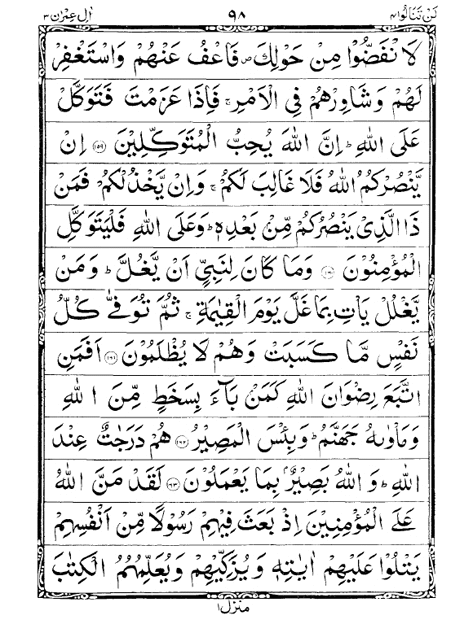 لن تنالوا ٤ ٩٨ اٰل عمرٰن ٣
لَا نْفَضُّوْا مِنْ حَوْلِكَ ۪ فَاعْفُ عَنْهُمْ وَاسْتَغْفِرْ
لَهُمْ وَشَاوِرْهُمْ فِي الْاَمْرِ ۚ فَاِذَا عَزَمْتَ فَتَوَكَّلْ
عَلَى اللّٰهِ ؕ اِنَّ اللّٰهَ يُحِبُّ الْمُتَوَكِّلِيْنَ ﴿١٥٩﴾ اِنْ
يَّنْصُرْكُمُ اللّٰهُ فَلَا غَالِبَ لَكُمْ ۚ وَاِنْ يَّخْذُلْكُمْ فَمَنْ
ذَا الَّذِيْ يَنْصُرُكُمْ مِّنْۢ بَعْدِهٖ ؕ وَعَلَى اللّٰهِ فَلْيَتَوَكَّلِ
الْمُؤْمِنُوْنَ ﴿١٦٠﴾ وَمَا كَانَ لِنَبِيٍّ اَنْ يَّغُلَّ ؕ وَمَنْ
يَّغْلُلْ يَاْتِ بِمَا غَلَّ يَوْمَ الْقِيٰمَةِ ۚ ثُمَّ تُوَفّٰى كُلُّ
نَفْسٍ مَّا كَسَبَتْ وَهُمْ لَا يُظْلَمُوْنَ ﴿١٦١﴾ اَفَمَنِ
اتَّبَعَ رِضْوَانَ اللّٰهِ كَمَنْۢ بَآءَ بِسَخَطٍ مِّنَ اللّٰهِ
وَمَاْوٰىهُ جَهَنَّمُ ؕ وَبِئْسَ الْمَصِيْرُ ﴿١٦٢﴾ هُمْ دَرَجٰتٌ عِنْدَ
اللّٰهِ ؕ وَاللّٰهُ بَصِيْرٌۢ بِمَا يَعْمَلُوْنَ ﴿١٦٣﴾ لَقَدْ مَنَّ اللّٰهُ
عَلَى الْمُؤْمِنِيْنَ اِذْ بَعَثَ فِيْهِمْ رَسُوْلًا مِّنْ اَنْفُسِهِمْ
يَتْلُوْا عَلَيْهِمْ اٰيٰتِهٖ وَيُزَكِّيْهِمْ وَيُعَلِّمُهُمُ الْكِتٰبَ
منزل ١